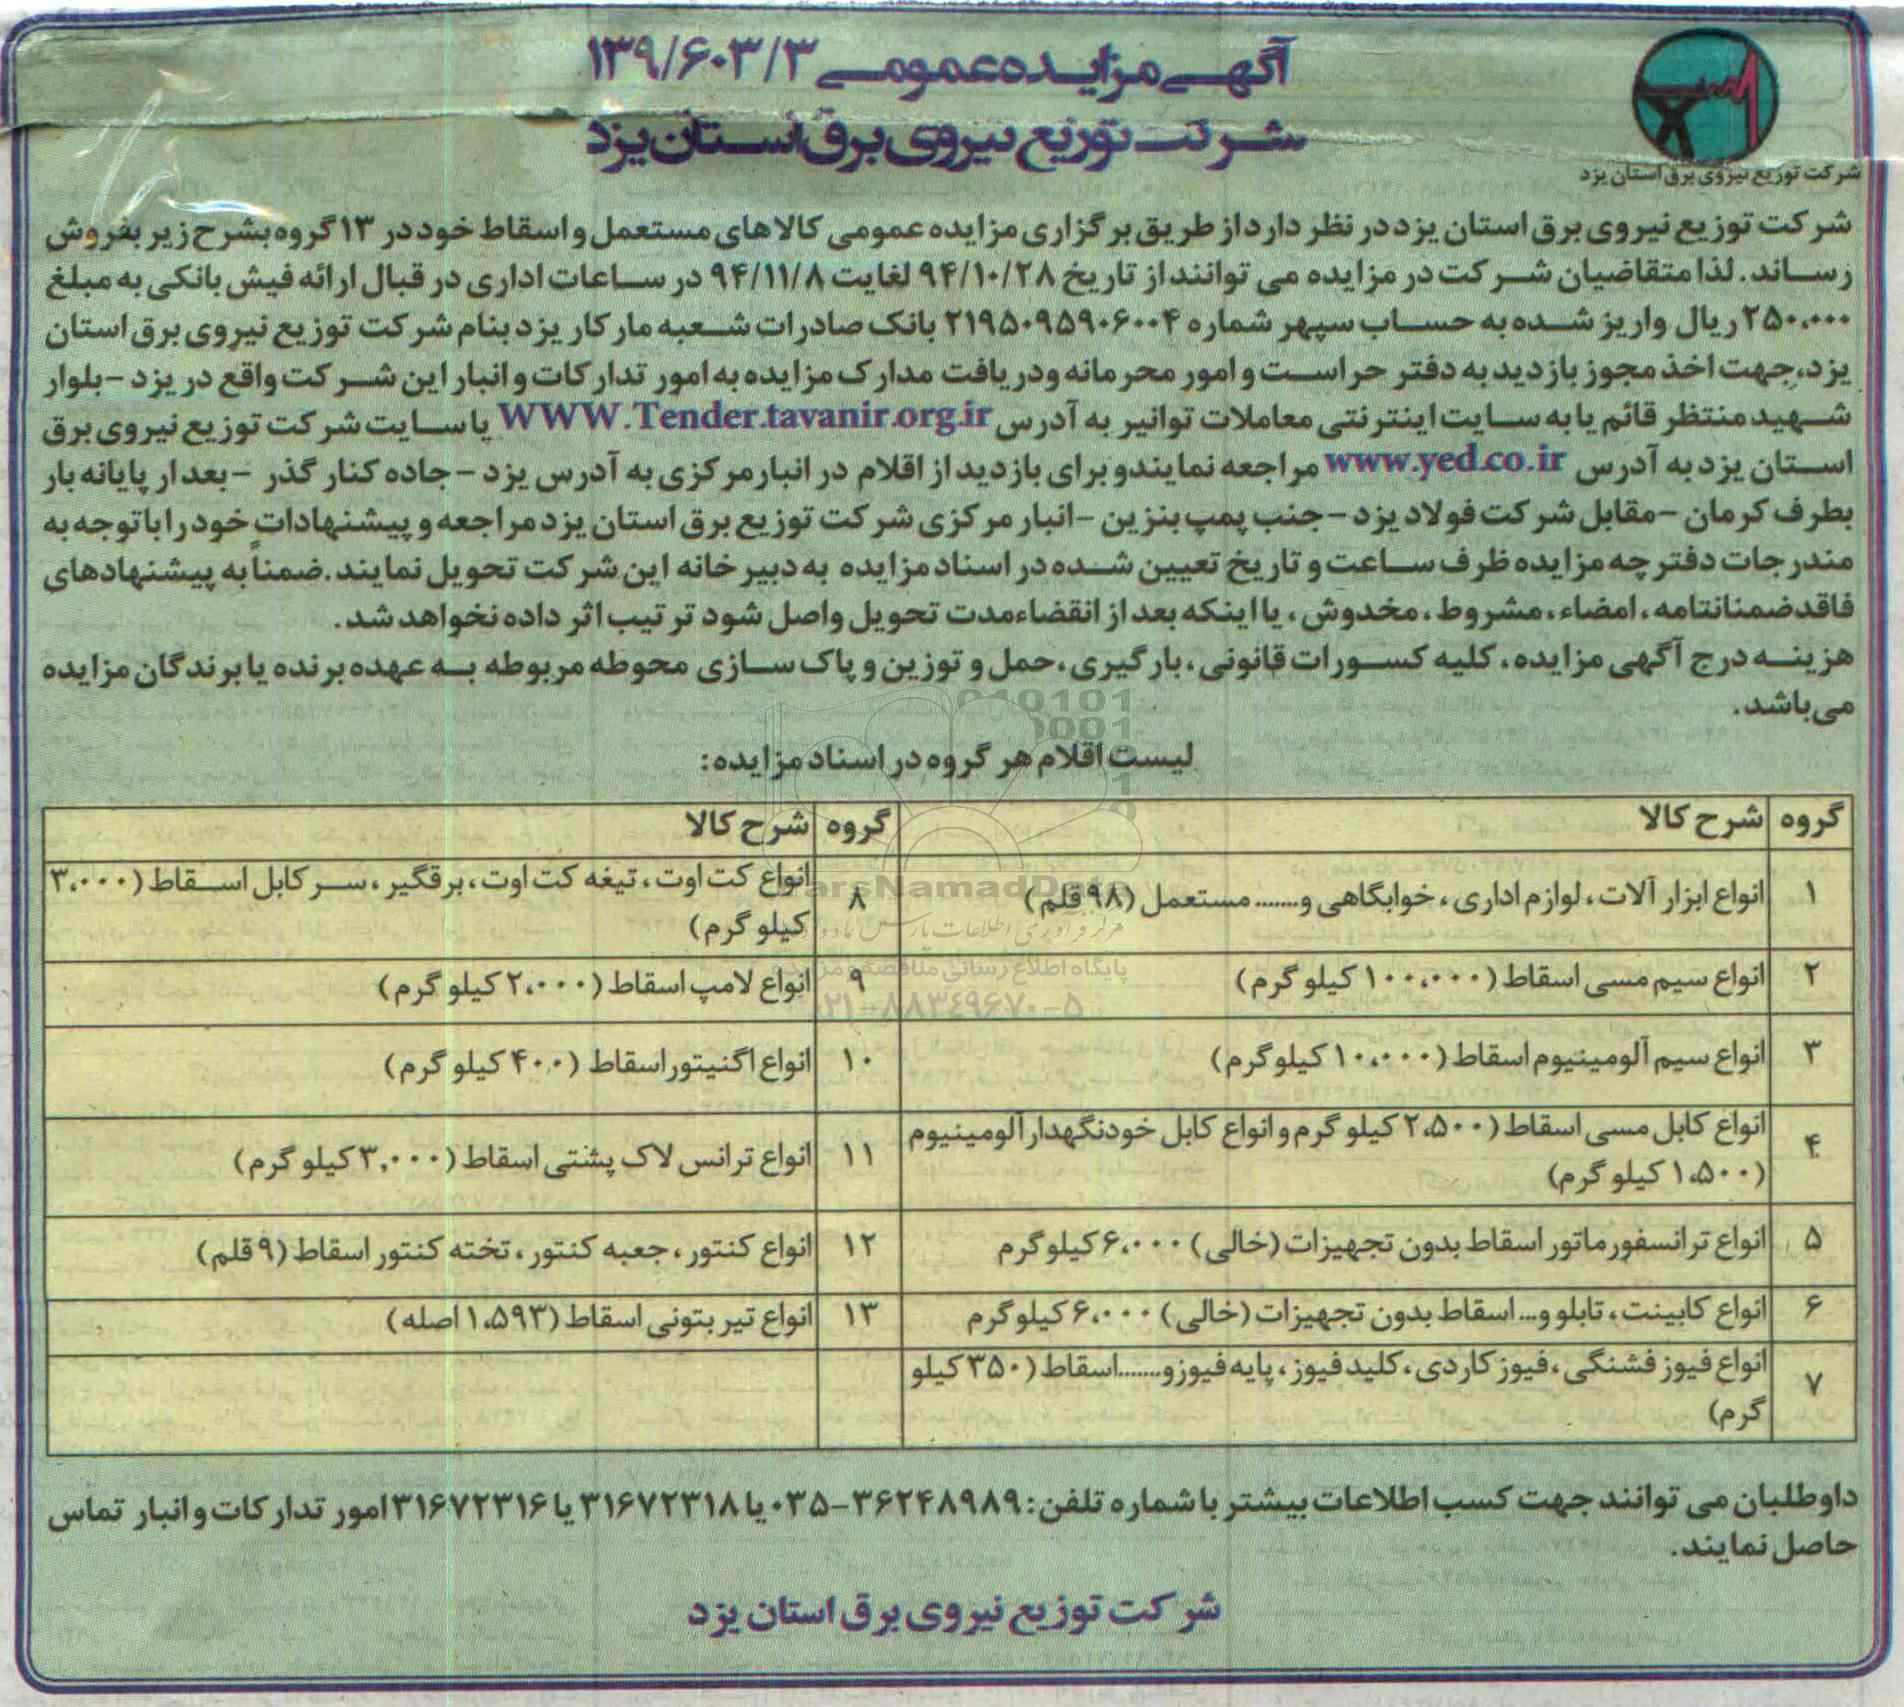 آگهی مزایده عمومی ۱۳۹/۶۰۳/۳
شرکت توزیع نیروی برق استان یزد
شرکت توزیع نیروی برق استان یزد
شرکت توزیع نیروی برق استان یزد در نظر دارد از طریق برگزاری مزایده عمومی کالاهای مستعمل و اسقاط خود در ۱۳ گروه بشرح زیر بفروش
رساند. لذا متقاضیان شرکت در مزایده می توانند از تاریخ ۹۴/۱۰/۲۸ لغایت ۹۴/۱۱/۸ در ساعات اداری در قبال ارائه فیش بانکی به مبلغ
۲۵۰،۰۰۰ ریال واریز شده به حساب سپهر شماره ۲۱۹۵۰۹۵۹۰۶۰۰۴ بانک صادرات شعبه مارکار یزد بنام شرکت توزیع نیروی برق استان
یزد،جهت اخذ مجوز بازدید به دفتر حراست و امور محرمانه ودریافت مدارک مزایده به امور تدارکات و انبار این شرکت واقع در یزد -بلوار
شهید منتظر قائم یا به سایت اینترنتی معاملات توانیر به آدرس WWW.Tender.tavanir.org.ir یا سایت شرکت توزیع نیروی برق
استان یزد به آدرس www.yed.co.ir مراجعه نمایندو برای بازدید از اقلام در انبار مرکزی به آدرس یزد -جاده کنار گذر -بعد از پایانه بار
بطرف کرمان -مقابل شرکت فولاد یزد -جنب پمپ بنزین -انبار مرکزی شرکت توزیع برق استان یزد مراجعه و پیشنهادات خود را با توجه به
مندرجات دفترچه مزایده ظرف ساعت و تاریخ تعیین شده در اسناد مزایده به دبیرخانه این شرکت تحویل نمایند.ضمناً به پیشنهادهای
فاقد ضمانتنامه، امضاء، مشروط، مخدوش، یا اینکه بعد از انقضاءمدت تحویل واصل شود ترتیب اثر داده نخواهد شد.
هزینه درج آگهی مزایده، کلیه کسورات قانونی، بارگیری،حمل و توزین و پاک سازی محوطه مربوطه به عهده برنده یا برندگان مزایده
می باشد.
لیست اقلام هر گروه در اسناد مزایده:
گروه شرح کالا گروه شرح کالا
۱ انواع ابزار آلات، لوازم اداری، خوابگاهی و....... مستعمل (۹۸ قلم)
۸ انواع کت اوت، تیغه کت اوت، برقگیر، سرکابل اسقاط (۳،۰۰۰
کیلو گرم)
۲ انواع سیم مسی اسقاط (۱۰۰،۰۰۰ کیلو گرم)
۹ انواع لامپ اسقاط (۲،۰۰۰ کیلو گرم)
۳ انواع سیم آلومینیوم اسقاط (۱۰،۰۰۰ کیلوگرم)
۱۰ انواع اگنیتور اسقاط (۴۰۰ کیلو گرم)
۴ انواع کابل مسی اسقاط (۲،۵۰۰ کیلو گرم و انواع کابل خودنگهدار آلومینیوم
(۱،۵۰۰ کیلو گرم)
۱۱ انواع ترانس لاک پشتی اسقاط (۳,۰۰۰ کیلو گرم)
۵ انواع ترانسفورماتور اسقاط بدون تجهیزات (خالی) ۶،۰۰۰ کیلوگرم
۱۲ انواع کنتور، جعبه کنتور، تخته کنتور اسقاط (۹ قلم)
۶ انواع کابینت، تابلو و... اسقاط بدون تجهیزات (خالی) ۶،۰۰۰ کیلوگرم
۱۳ انواع تیر بتونی اسقاط (۱،۵۹۳ اصله)
۷ انواع فیوز فشنگی، فیوز کاردی، کلید فیوز، پایه فیوز و.......اسقاط (۳۵۰ کیلو
گرم)
داوطلبان می توانند جهت کسب اطلاعات بیشتر با شماره تلفن: ۳۶۲۴۸۹۸۹-۰۳۵ یا ۳۱۶۷۲۳۱۸ یا ۳۱۶۷۲۳۱۶ امور تدارکات و انبار تماس
حاصل نمایند.
شرکت توزیع نیروی برق استان یزد
پایگاه اطلاع رسانی مناقصه و مزایده
۰۲۱-۸۸۳۴۹۶۷۰-۵